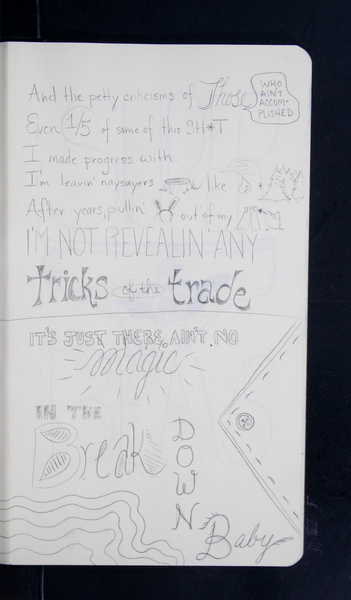 And the petty criticisms of Those WHO AIN'T ACCOM-PLISHED
Even 1/5 of some of this SH*T
I made progress with.
I'm leavin' naysayers like +
After years, pullin' out of my
I'M NOT REVEALIN' ANY
tricks of the trade
IT'S JUST THERE AIN'T NO
magic
IN THE
Break
DOWN
Baby